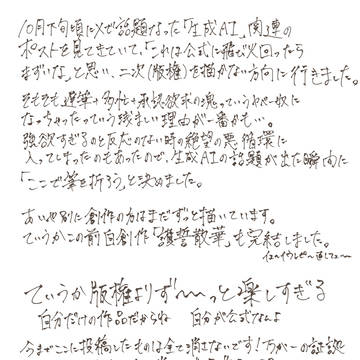 10月下旬頃にXで話題なった「生成AI」関連の
ポストを見てきていて、「これは公式に飛び火回ったら
まずいな」と思い、二次(版権)を描かない方向に行きました。
そもそも遅筆+多忙+承認欲求の塊っていうやべー奴に
なっちゃったっていう浅ましい理由が一番かも…。
強欲すぎるのと反応のない時の絶望の悪循環に
入ってしまったのもあったので、生成AIの話題が出た瞬間に
「ここで筆を折ろう」と決めました。
あ、いや別に創作の方はまだずっと描いています。
ていうかこの前自創作「護誓散華」も完結しました。
ていうか版権よりず〜〜っと楽しすぎる
自分だけの作品だからね 自分が公式なんよ
今までここに投稿したものは全て消さないです!万が一の